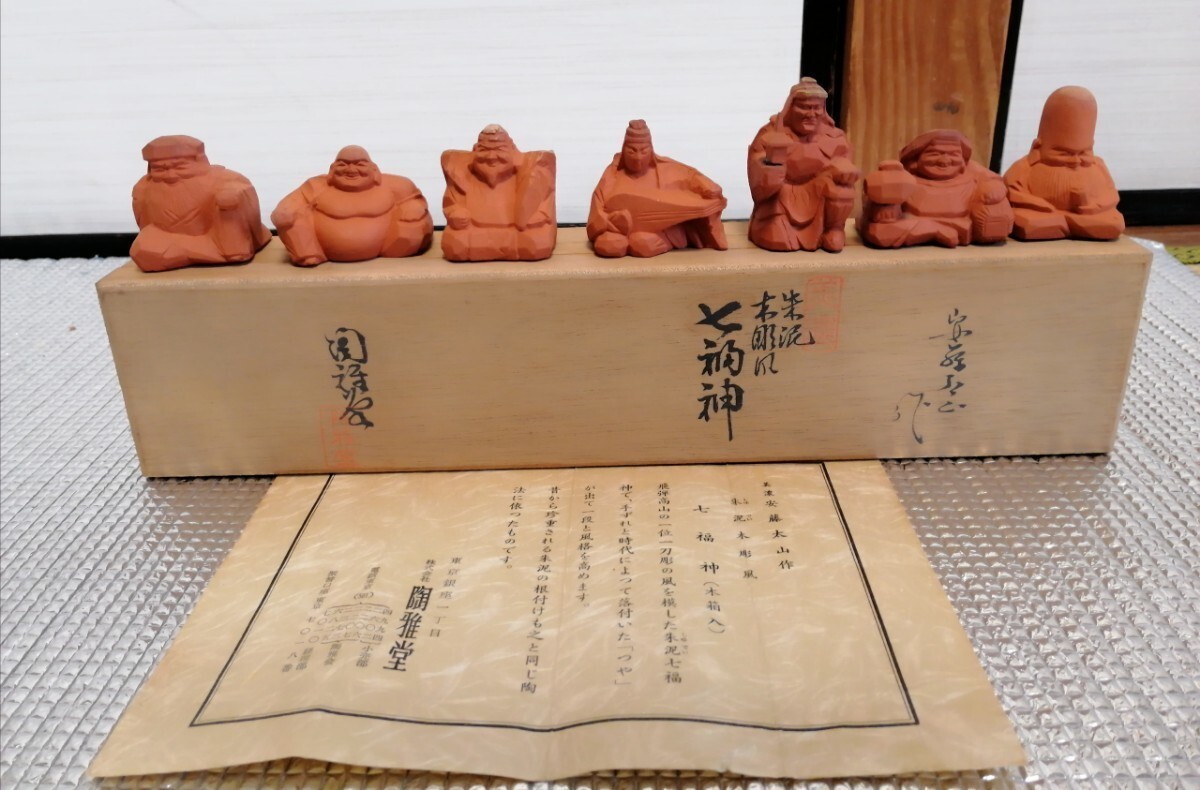 安藤太山
作
朱泥
木彫風
七福神
陶雅堂
美濃安藤太山作
朱泥木彫風
七福神（木箱入）
飛弾高山の一位一刀彫の風を模した朱泥七福
神で、手ずれと時代によって落付いた「つや」
が出て一段と風格を高めます。
昔から珍重される朱泥の根付けも之と同じ陶
法に依ったものです。
東京銀座一丁目
株式会社 陶雅堂